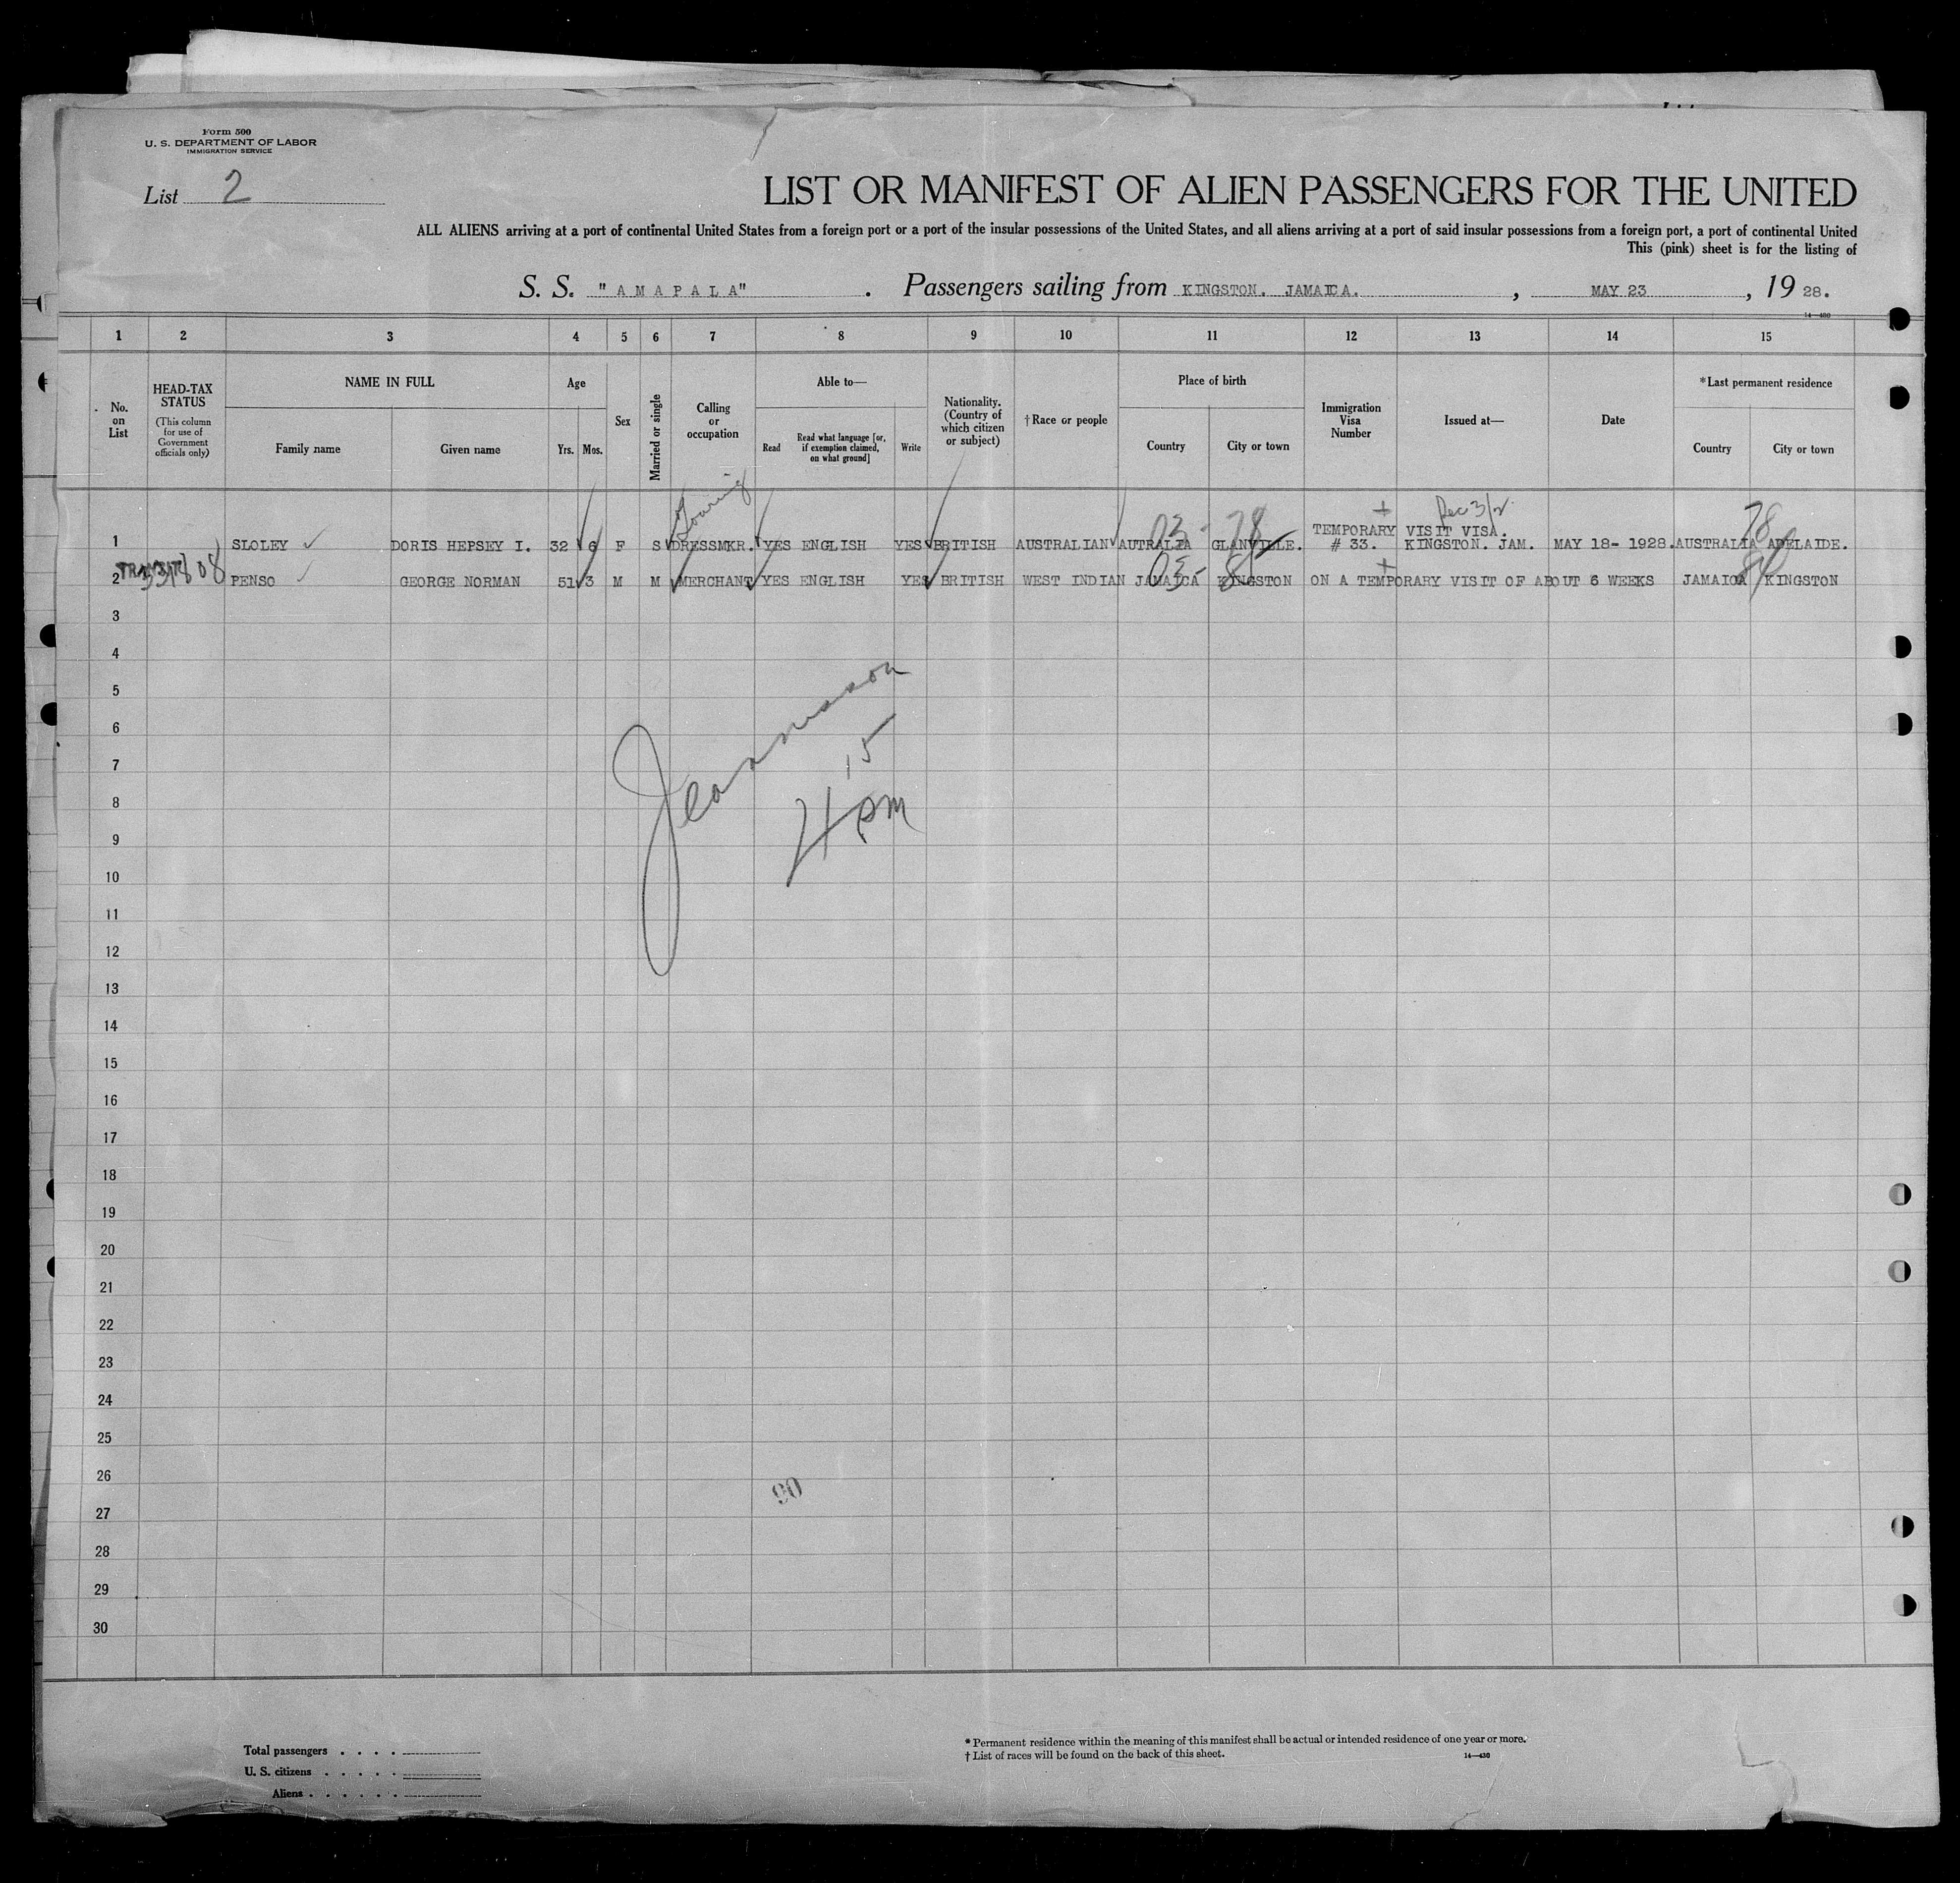 Form 500
U. S. DEPARTMENT OF LABOR
IMMIGRATION SERVICE
List 2
LIST OR MANIFEST OF ALIEN PASSENGERS FOR THE UNITED
ALL ALIENS arriving at a port of continental United States from a foreign port or a port of the insular possessions of the United States, and all aliens arriving at a port of said insular possessions from a foreign port, a port of continental United
This (pink) sheet is for the listing of
S. S. "AMAPALA". Passengers sailing from KINGSTON. JAMAICA. , MAY 23 , 19 28.
14—430
1 2 3 4 5 6 7 8 9 10 11 12 13 14 15
No. on List
HEAD-TAX STATUS
(This column for use of Government officials only)
NAME IN FULL
Family name Given name
Age
Yrs. Mos.
Sex
Married or single
Calling or occupation
Able to—
Read Read what language [or, if exemption claimed, on what ground] Write
Nationality. (Country of which citizen or subject)
†Race or people
Place of birth
Country City or town
Immigration Visa Number
Issued at—
Date
*Last permanent residence
Country City or town
Dec 3/2
03 - 78 78
TEMPORARY VISIT VISA.
1 SLOLEY DORIS HEPSEY I. 32 6 F S DRESSMKR. YES ENGLISH YES BRITISH AUSTRALIAN AUTRALIA GLANVILLE. # 33. KINGSTON. JAM. MAY 18- 1928. AUSTRALIA ADELAIDE.
TRANSIT
2 PENSO GEORGE NORMAN 51 3 M M MERCHANT YES ENGLISH YES BRITISH WEST INDIAN JAMAICA KINGSTON ON A TEMPORARY VISIT OF ABOUT 6 WEEKS JAMAICA KINGSTON
3
4
5
6
7
8
9
10
11
12
13
14
15
16
17
18
19
20
21
22
23
24
25
26
27
28
29
30
15
4 PM
90
Total passengers . . . .
U. S. citizens . . . . .
Aliens . . . . . .
* Permanent residence within the meaning of this manifest shall be actual or intended residence of one year or more.
† List of races will be found on the back of this sheet.
14—430